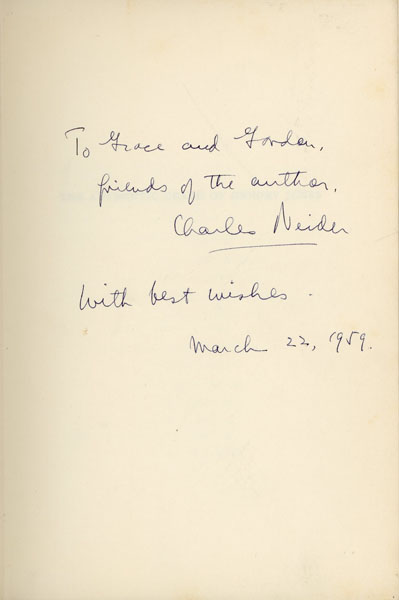 To Grace and Gordon,
friends of the author,
Charles Neider
With best wishes.
March 22, 1959.